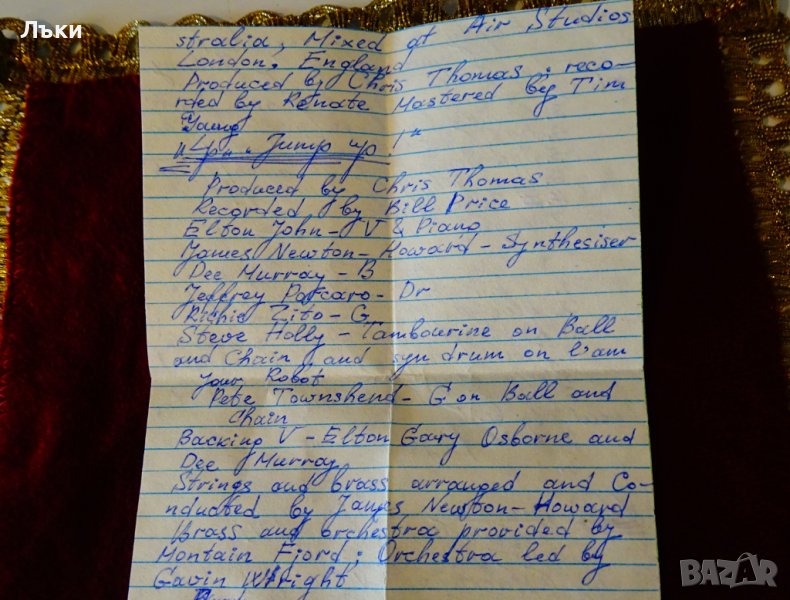 Лъки
stralia, Mixed at Air Studios
London, England
Produced by Chris Thomas; reco-
rded by Renate Mastered by Tim
Young
"Lp" "Jump up!"
Produced by Chris Thomas
Recorded by Bill Price
Elton John - V & Piano
James Newton-Howard - Synthesiser
Dee Murray - B
Jeffrey Porcaro - Dr
Richie Zito - G
Steve Holly - Tambourine on Ball
and Chain, and syn drum on I'am
Your Robot
Pete Townshend - G on Ball and
Chain
Backing V - Elton Gary Osborne and
Dee Murray
Strings and brass arranged and Co-
nducted by James Newton-Howard
Brass and orchestra provided by
Montain Fjord; Orchestra led by
Gavin Wright
BAZAR